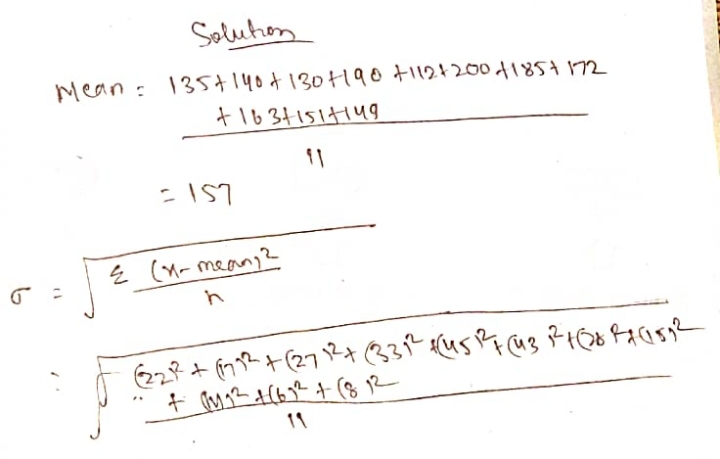 Solution
Mean = 135+140+130+190+112+200+185+172
+163+151+149
11
= 157
σ = √ Σ (x-mean)²
n
= √ (22)² + (17)² + (27)² + (33)² + (45)² + (43)² + (28)² + (15)²
+ (4)² + (6)² + (8)²
11